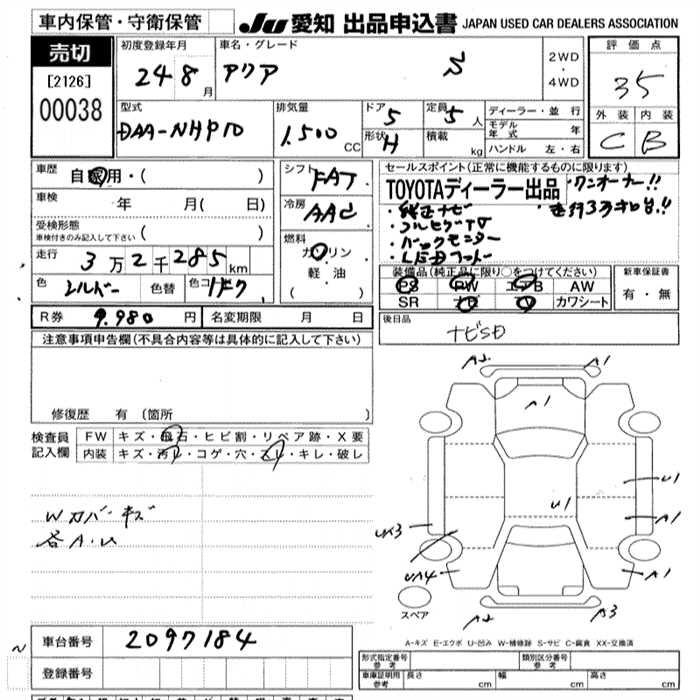 車内保管・守衛保管 Ju 愛知 出品申込書 JAPAN USED CAR DEALERS ASSOCIATION
売切
[2126]
00038
初度登録年月
24 8 月
車名・グレード
アクア S
2WD
・
4WD
評価点
35
外装 内装
C B
型式
DAA-NHP10
排気量
1.500 CC
ドア 5
形状 H
定員 5 人
積載 kg
ディーラー・並行
モデル年式 年
ハンドル 左・右
車歴 自家用・( )
車検 年 月( 日)
受検形態
車検付きのみ記入して下さい ( )
走行 3万2千285km
色 シルバー 色替 色コード 1F7
シフト FAT
冷房 AAC
燃料
ガソリン
軽・油
( )
セールスポイント(正常に機能するものに限り)
TOYOTAディーラー出品 ・ワンオーナー!!
・純正ナビ ・走行3万キロ台!!
・フルセグTV
・バックモニター
・LEDフォグ
装備品(純正品に限り○をつけてください)
PS PW エアB AW
SR ナビ TV カワシート
新車保証書
有・無
R券 9.980 円 名変期限 月 日
後日品
ナビSD
注意事項申告欄(不具合内容等は具体的に記入して下さい)
修復歴 有(箇所
検査員
記入欄
FW キズ・飛石・ヒビ割・リペア跡・X要
内装 キズ・汚レ・コゲ・穴・スレ・キレ・破レ
Wカバーキズ
各A・U
A2 A1
A1
U1
U1
A1
UX3
UA4
A1
A2 A3
スペア
A-キズ E-エクボ U-凹み W-補修跡 S-サビ C-腐食 XX-交換済
車台番号 2097184
登録番号
形式指定番号
参考
類別区分番号
参考
車庫証明用
参考
長さ cm 幅 cm 高さ cm